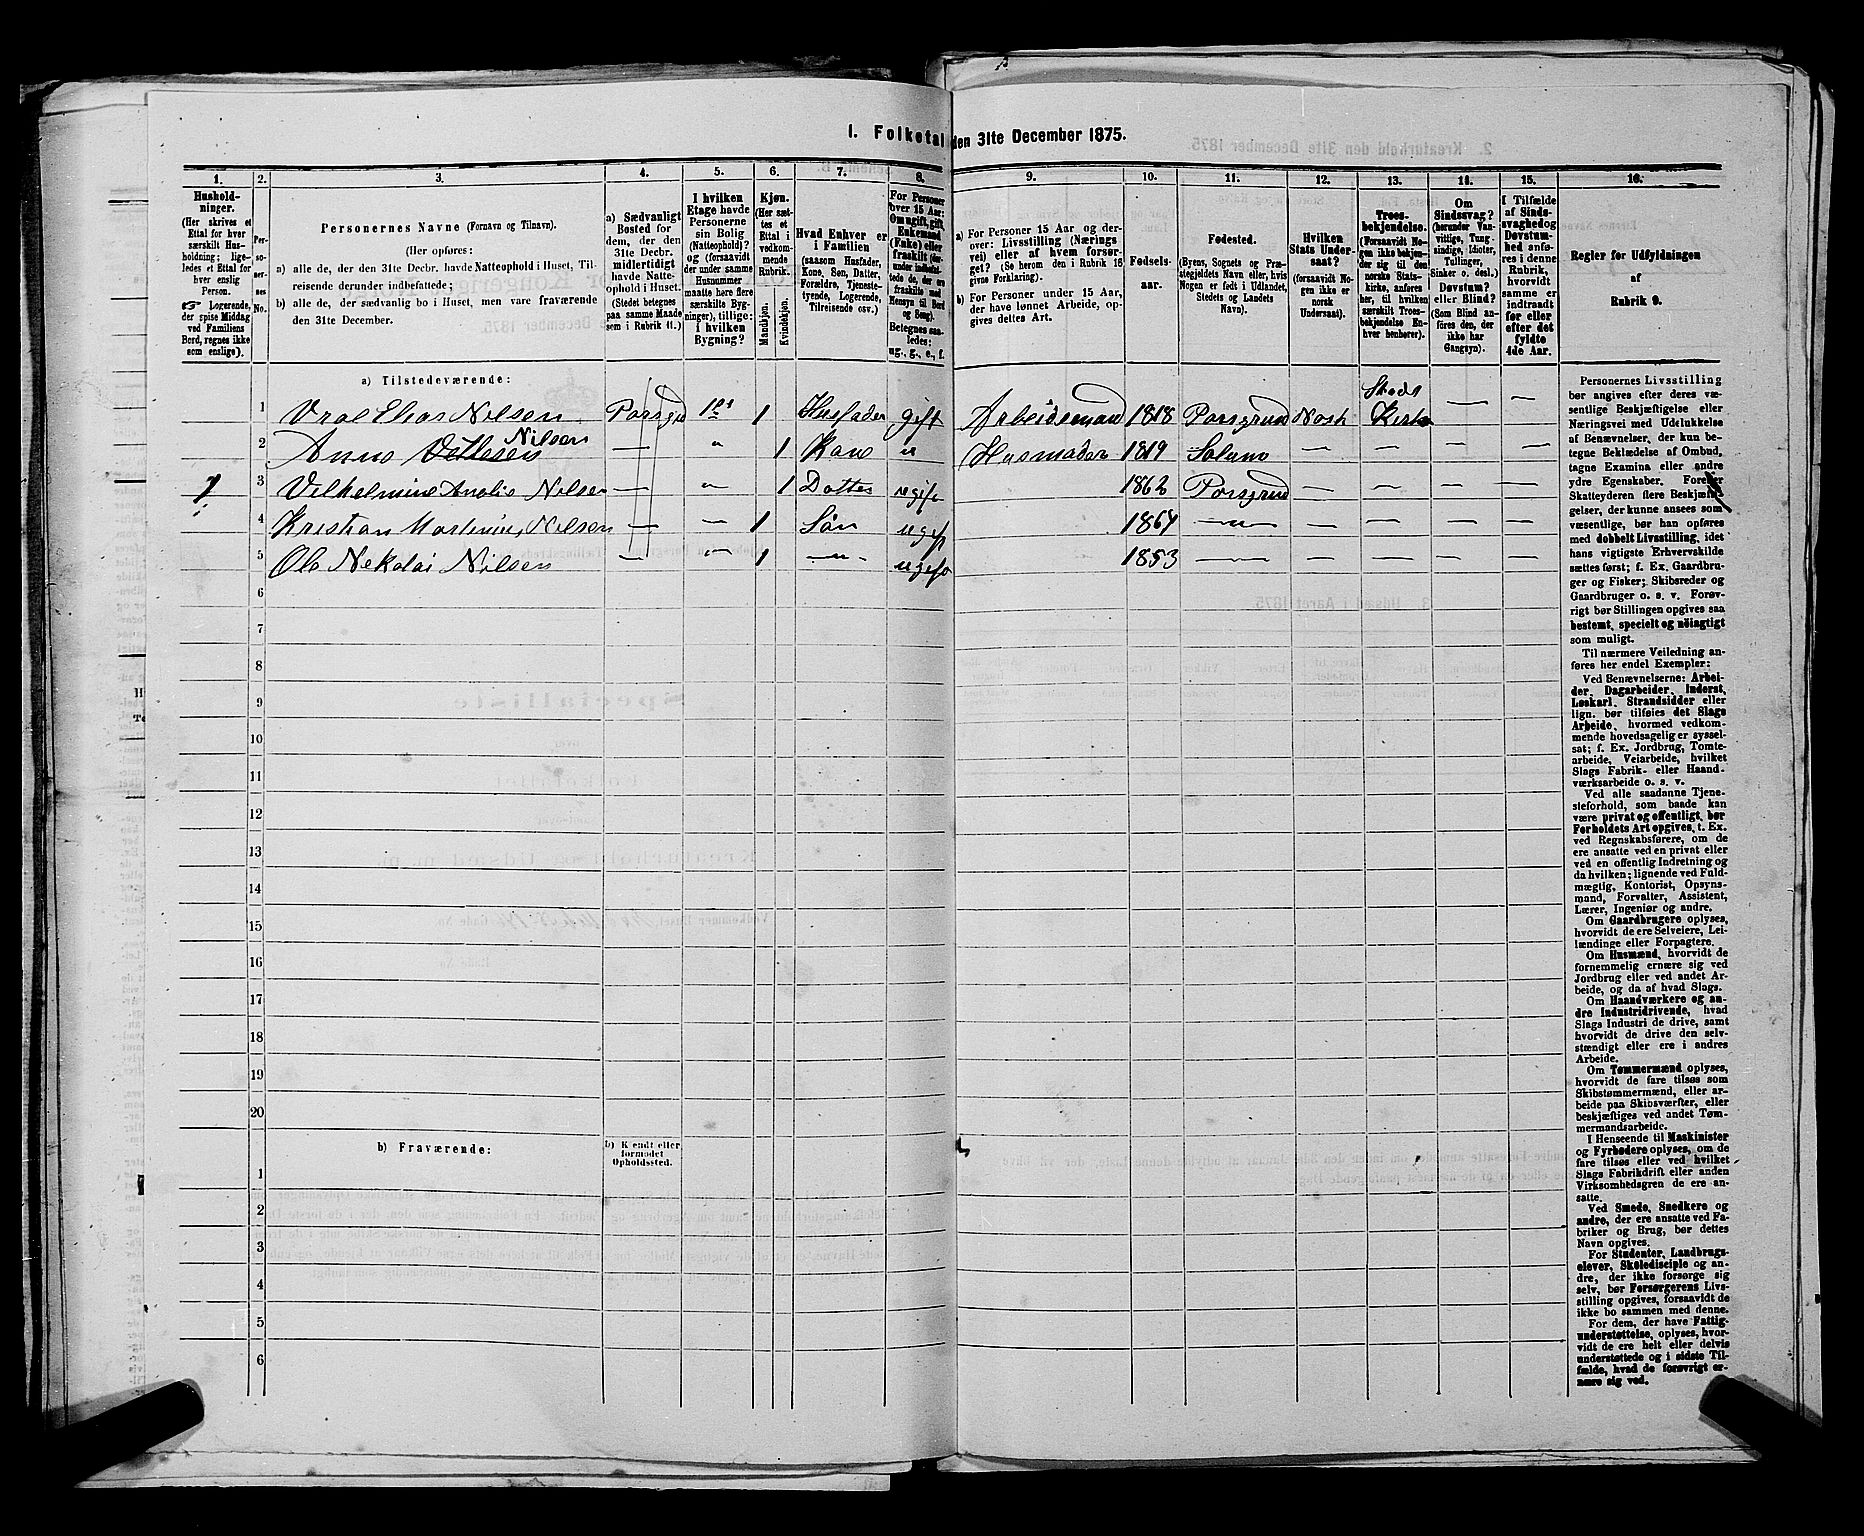 1. Folketal den 31te December 1875.
1.
Hushold-
ninger.
(Her skrives et
Ettal for hver
særskilt Hus-
holdning; lige-
ledes et Ettal for
hver enslig
Person.
☞ Logerende,
der spise Middag
ved Familiens
Bord, regnes ikke
som enslige).
2.
Per-
so-
ner-
nes
No.
3.
Personernes Navne (Fornavn og Tilnavn).
(Her opføres:
a) alle de, der den 31te Decbr. havde Natteophold i Huset, Til-
reisende derunder indbefattede;
b) alle de, der sædvanlig bo i Huset, men vare fraværende
den 31te December.
4.
a) Sædvanligt
Bosted for
dem, der den
31te Decbr.
midlertidigt
havde Natte-
ophold i Huset.
(Stedet betegnes
paa samme Maade
som i Rubrik 11.)
5.
I hvilken
Etage havde
Personerne
sin Bolig
(Natteophold)?
og (forsaavidt
der under samme
Husnummer
maatte høre flere
særskilte Byg-
ninger), tillige:
i hvilken
Bygning?
6.
Kjøn.
(Her sæt-
tes et
Ettal i
vedkom-
mende
Rubrik.
Mandkjøn.
Kvindekjøn.
7.
Hvad Enhver er
i Familien
(saasom Husfader,
Kone, Søn, Datter,
Forældre, Tjeneste-
tyende, Logerende,
Tilreisende osv.)
8.
For Personer
over 15 Aar:
Om ugift, gift,
Enkemand
(Enke) eller
fraskilt
Betegnes saa-
ledes:
ug., g., e., f.
9.
a) For Personer 15 Aar og der-
over: Livsstilling (Nærings
vei) eller af hvem forsør-
get? (Se herom den i Rubrik 16
givne Forklaring).
b) For Personer under 15 Aar,
der have lønnet Arbeide, op-
gives dettes Art.
10.
Fødsels-
aar.
11.
Fødested.
(Byens, Sognets og Præ-
stegjeldets Navn eller, hvis
Nogen er født i Udlandet,
Stedets og Landets
Navn).
12.
Hvilken
Stats Under-
saat?
(forsaavidt No-
gen ikke er
norsk
Undersaat).
13.
Troes-
bekjendelse.
(Forsaavidt No-
gen ikke bekjen-
der sig til den
norske Stats-
kirke, anføres
her, til hvilken
særskilt Troes-
bekjendelse En-
hver henhører).
14.
Om
Sindssvag?
(herunder Van-
vittige, Tung-
sindige, Idioter,
Tullinger,
Sinker o. desl.)
Døvstum?
eller Blind?
(Som Blind an-
føres den, der
ikke har
Gangsyn).
15.
I Tilfælde
af Sinds-
svaghed og
Døvstum-
hed anfø-
res i denne
Rubrik,
hvorvidt
samme er
indtraadt
før eller
efter det
fyldte
4de Aar.
16.
Regler for Udfyldningen
af
Rubrik 9.
a) Tilstedeværende:
1 Vral Elias Nilsen Porsgrd 1ste 1 Husfader gift Arbeidsmand 1818 Porsgrund Norsk Stads Kirke — —
2 Anne Vetlesen Nilsen — „ 1 Kone „ Husmoder 1819 Solum — — — —
1 3 Vilhelmine Amalie Nilsen — „ 1 Datter ugift 1862 Porsgrund — — — —
4 Kristian Martinius Nilsen — „ 1 Søn ugift 1864 —„— — — — —
5 Ole Nekolai Nilsen — „ 1 —„— ugift 1853 — — — — —
6
7
8
9
10
11
12
13
14
15
16
17
18
19
20
b) Fraværende:
b) Kjendt eller
formodet
Opholdssted.
1
2
3
4
5
6
Personernes Livsstilling
bør angives efter deres væ-
sentlige Beskjæftigelse eller
Næringsvei med Udelukkelse
af Benævnelser, der kun be-
tegne Beklædelse af Ombud,
tagne Examina eller andre
ydre Egenskaber. Forener
Skatteyderen flere Beskjæfti-
gelser, der kunne ansees som
væsentlige, bør han opføres
med dobbelt Livsstilling, idet
hans vigtigste Erhvervskilde
sættes først; f. Ex. Gaardbru-
ger og Fisker; Skibsreder og
Gaardbruger o. s. v. Forøv-
rigt bør Stillingen opgives saa
bestemt, specielt og nøiagtigt
som muligt.
Til nærmere Veiledning an-
føres her endel Exempler:
Ved Benævnelserne: Arbei-
der, Dagarbeider, Inderst,
Løskarl, Strandsidder eller
lign. bør tilføies det Slags
Arbeide, hvormed vedkom-
mende hovedsagelig er syssel-
sat; f. Ex. Jordbrug, Tomte-
arbeide, Veiarbeide, hvilket
Slags Fabrik- eller Haand-
værksarbeide o. s. v.
Ved alle saadanne Tjene-
steforhold, som baade kan
være privat og offentligt, bør
Forholdets Art opgives, t. Ex.
ved Regnskabsførere, om de
ere ansatte ved en privat eller
ved en offentlig Indretning og
da hvilken; lignende ved Fuld-
mægtig, Kontorist, Opsyns-
mand, Forvalter, Assistent,
Lærer, Ingeniør og andre.
Om Gaardbrugere oplyses,
hvorvidt de ere Selveiere, Lei-
lændinge eller Forpagtere.
Om Husmænd, hvorvidt de
fornemmelig ernære sig ved
Jordbrug eller ved andet Ar-
beide, og da af hvad Slags.
Om Haandværkere og an-
dre Industridrivende, hvad
Slags Industri de drive, samt
hvorvidt de drive den selv-
stændigt eller ere i andres
Arbeide.
Om Tømmermænd oplyses,
hvorvidt de fare tilsøs som
Skibstømmermænd, eller ar-
beide paa Skibsværfter, eller
beskjæftiges ved andet Tøm-
mermandsarbeide.
I Henseende til Maskinister
og Fyrbødere oplyses, om de
fare tilsøs eller ved hvilket
Slags Fabrikdrift eller anden
Virksomhedsgren de ere an-
satte.
Ved Smede, Snedkere og
andre, der ere ansatte ved Fa-
briker og Brug, bør dettes
Navn opgives.
For Studenter, Landbrugs-
elever, Skoledisciple og an-
dre, der ikke forsørge sig
selv, bør Forsørgerens Livs-
stilling opgives, forsaavidt de
ikke bo sammen med denne.
For dem, der have Fattig-
understøttelse, oplyses, hvor-
vidt de ere helt eller delvis
understøttede og i sidste Til-
fælde, hvad de forøvrigt er-
nære sig ved.